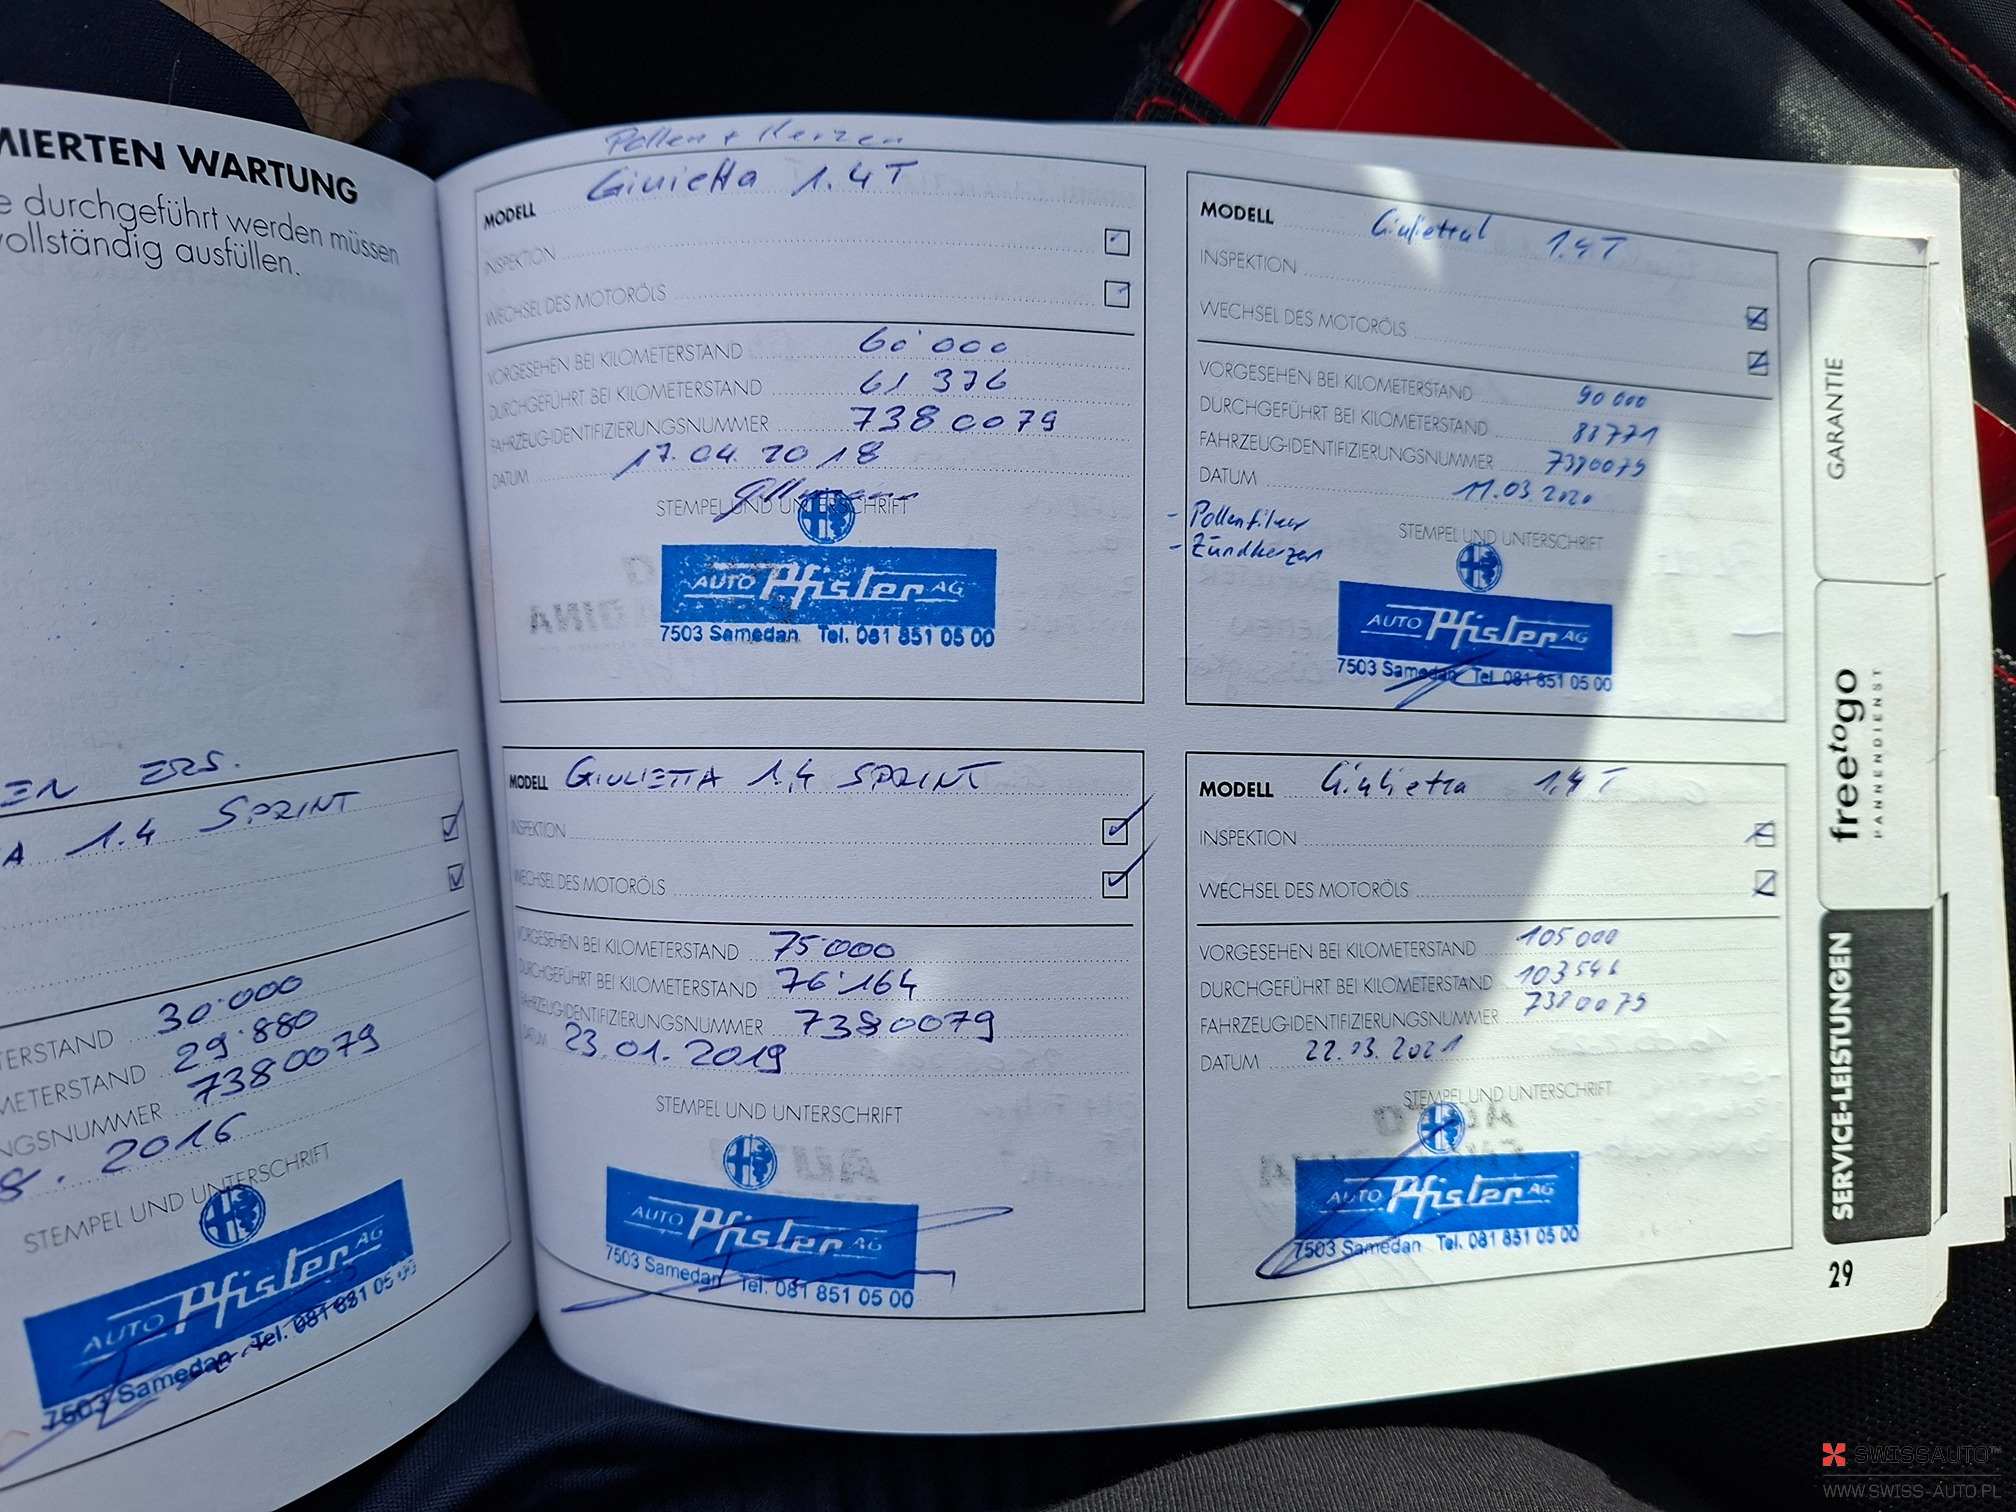 MIERTEN WARTUNG
e durchgeführt werden müssen
vollständig ausfüllen.
EN ERS.
A 1.4 SPRINT
TERSTAND 30'000
METERSTAND 29'880
NGSNUMMER 7380079
8. 2016
STEMPEL UND UNTERSCHRIFT
AUTO Pfister AG
7503 Samedan Tel. 081 851 05 00
Pollen + Kerzen
MODELL Giulietta 1.4T
INSPEKTION
WECHSEL DES MOTORÖLS
VORGESEHEN BEI KILOMETERSTAND 60'000
DURCHGEFÜHRT BEI KILOMETERSTAND 61 376
FAHRZEUG-IDENTIFIZIERUNGSNUMMER 7380079
DATUM 17.04.2018
STEMPEL UND UNTERSCHRIFT
AUTO Pfister AG
7503 Samedan Tel. 081 851 05 00
MODELL GIULIETTA 1,4 SPRINT
INSPEKTION
WECHSEL DES MOTORÖLS
VORGESEHEN BEI KILOMETERSTAND 75'000
DURCHGEFÜHRT BEI KILOMETERSTAND 76'164
FAHRZEUG-IDENTIFIZIERUNGSNUMMER 7380079
DATUM 23.01.2019
STEMPEL UND UNTERSCHRIFT
AUTO Pfister AG
7503 Samedan Tel. 081 851 05 00
MODELL Giulietta 1.4T
INSPEKTION
WECHSEL DES MOTORÖLS
VORGESEHEN BEI KILOMETERSTAND 90 000
DURCHGEFÜHRT BEI KILOMETERSTAND 88771
FAHRZEUG-IDENTIFIZIERUNGSNUMMER 7380079
DATUM 11.03.2020
- Pollenfilter
- Zündkerzen
STEMPEL UND UNTERSCHRIFT
AUTO Pfister AG
7503 Samedan Tel. 081 851 05 00
MODELL Giulietta 1,4T
INSPEKTION
WECHSEL DES MOTORÖLS
VORGESEHEN BEI KILOMETERSTAND 105 000
DURCHGEFÜHRT BEI KILOMETERSTAND 103546
FAHRZEUG-IDENTIFIZIERUNGSNUMMER 7380079
DATUM 22.03.2021
STEMPEL UND UNTERSCHRIFT
AUTO Pfister AG
7503 Samedan Tel. 081 851 05 00
GARANTIE
freetogo
PANNENDIENST
SERVICE-LEISTUNGEN
29
SWISSAUTO
WWW.SWISS-AUTO.PL